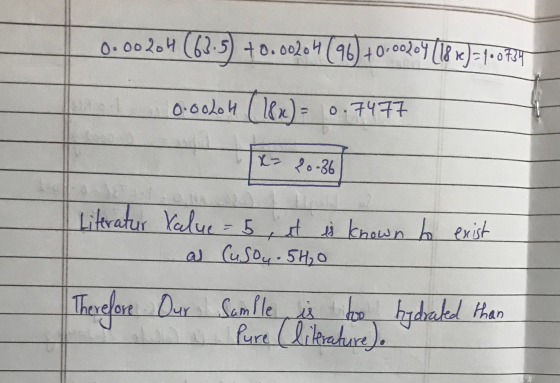 0.00204(63.5) + 0.00204(96) + 0.00204(18x) = 1.0734
0.00204(18x) = 0.7477
x = 20.36
Literatur Value = 5, it is known to exist
as CuSO4.5H2O
Therefore Our Sample is too hydrated than
Pure (literature).